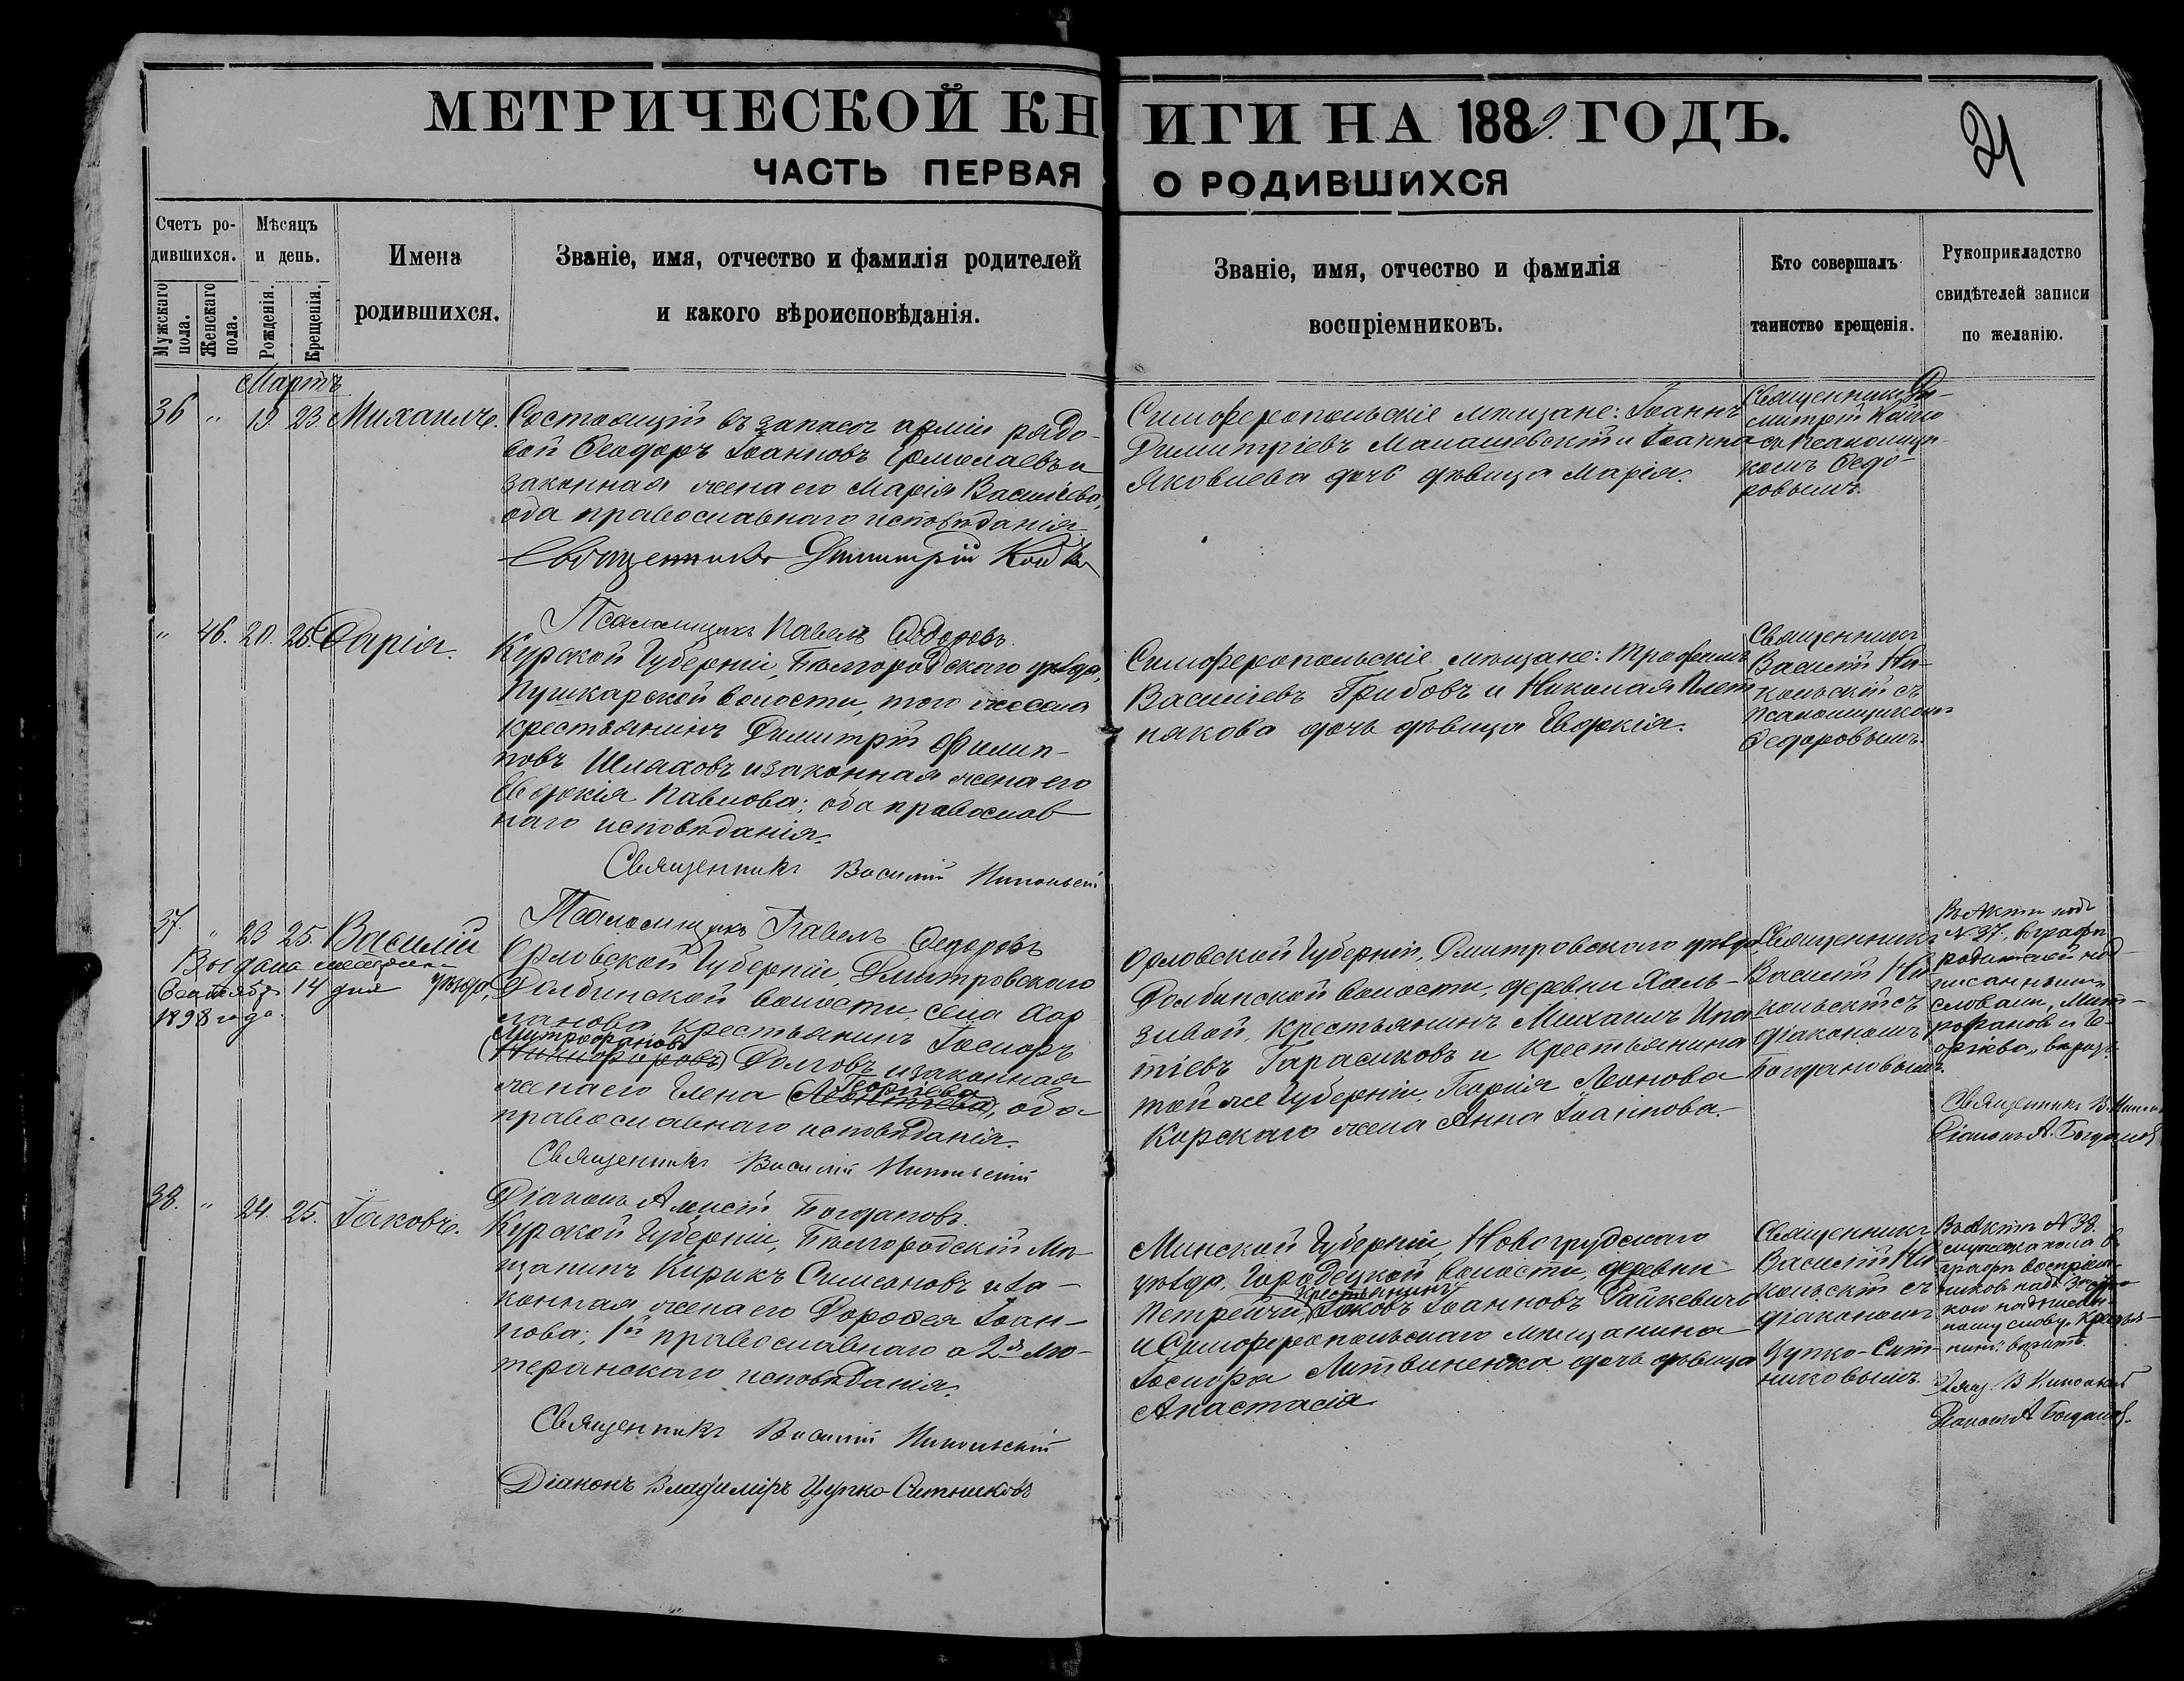 МЕТРИЧЕСКОЙ КНИГИ НА 1889 ГОДЪ.
21
ЧАСТЬ ПЕРВАЯ О РОДИВШИХСЯ
Счетъ ро-
дившихся.
Мужскаго пола.
Женскаго пола.
Мѣсяцъ
и день.
Рожденія.
Крещенія.
Имена
родившихся.
Званіе, имя, отчество и фамилія родителей
и какого вѣроисповѣданія.
Званіе, имя, отчество и фамилія
воспріемниковъ.
Кто совершалъ
таинство крещенія.
Рукоприкладство
свидѣтелей записи
по желанію.
Мартъ
36 " 19 23 Михаилъ.
Состоящій въ запасѣ арміи рядо-
вой Ѳеодоръ Іоанновъ Ермолаевъ и
законная жена его Марія Васильева,
оба православнаго исповѣданія.
Священникъ Димитрій Койко
Псаломщикъ Павелъ Ѳедоровъ.
Симферопольскіе мѣщане: Іоаннъ
Димитріевъ Манашевскій и Іоанна
Яковлева дочь дѣвица Марія.
Священникъ Ди-
митрій Койко
съ псаломщи-
комъ Ѳедо-
ровымъ.
" 46. 20. 25. Дарія.
Курской Губерніи, Бѣлгородскаго уѣзда,
Пушкарской волости, того же села
крестьянинъ Димитрій Филип-
повъ Шлаховъ и законная жена его
Евдокія Павлова; оба православ
наго исповѣданія.
Священникъ Василій Никольскій
Псаломщикъ Павелъ Ѳедоровъ
Симферопольскіе мѣщане: Трофимъ
Васильевъ Грибовъ и Николая Плет
някова дочь дѣвица Евдокія.
Священникъ
Василій Ни-
кольскій съ
псаломщикомъ
Ѳедоровымъ.
37. " 23 25. Василій
Выдана метрика
Сентября 14 дня
1898 года.
Орловской Губерніи, Дмитровского
уѣзда, Долбинской волости, села Хар
ланова крестьянинъ Іосифъ
Митрофановъ
(Никифоровъ) Долговъ и законная
Георгіева
жена его Елена (Леонтіева), оба
православнаго исповѣданія.
Священникъ Василій Никольскій
Діаконъ Алексій Богдановъ.
Орловской Губерніи, Дмитровского уѣзда,
Долбинской волости, деревни Халь-
зивой, крестьянинъ Михаилъ Ипа
тіевъ Гарасиковъ и крестьянина
той же Губерніи Георгія Леонова
Корскаго жена Анна Іоаннова.
Священникъ
Василій Ни
кольскій съ
діакономъ
Богдановымъ.
Въ Актѣ подъ
№ 37, въ графѣ
родителей над-
писаннымъ
словамъ „Мит-
рофановъ и Ге-
оргіева" вѣрить
Священникъ В. Никольскій
Діаконъ А. Богдановъ
38. " 24. 25. Іаковъ.
Курской Губерніи, Бѣлгородскій Мѣ-
щанинъ Кирикъ Симеоновъ и за-
конная жена его Доротея Іоан-
нова; 1й православнаго а 2я лю-
теранскаго исповѣданія.
Священникъ Василій Никольскій
Діаконъ Владиміръ Цупко-Ситниковъ
Минской Губерніи, Новогрудскаго
уѣзда, Городецкой волости, деревни
крестьянинъ
Петревичи, Іаковъ Іоанновъ Гайкевичъ
и Симферопольскаго мѣщанина
Іосифа Литвиненка дочь дѣвица
Анастасія
Священникъ
Василій Ни
кольскій съ
діакономъ
Цупко-Сит-
никовымъ.
Въ Актѣ № 38.
мужскаго пола въ
графѣ воспріем-
никовъ надъ
надписан-
ному слову „крестья-
нинъ" вѣрить.
Свящ. В Никольскій
Діаконъ А Богдановъ.